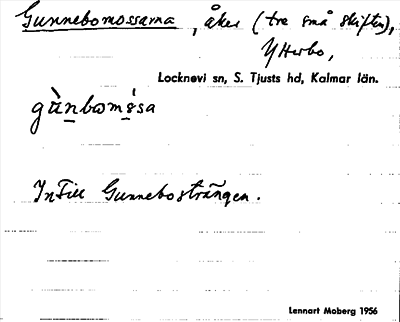 Gunnebomossarna, åker (tre små skiften),
Ytterbo,
Locknevi sn, S. Tjusts hd, Kalmar län.
gùnbωmósa
Intill Gunnebosträngen.
Lennart Moberg 1956